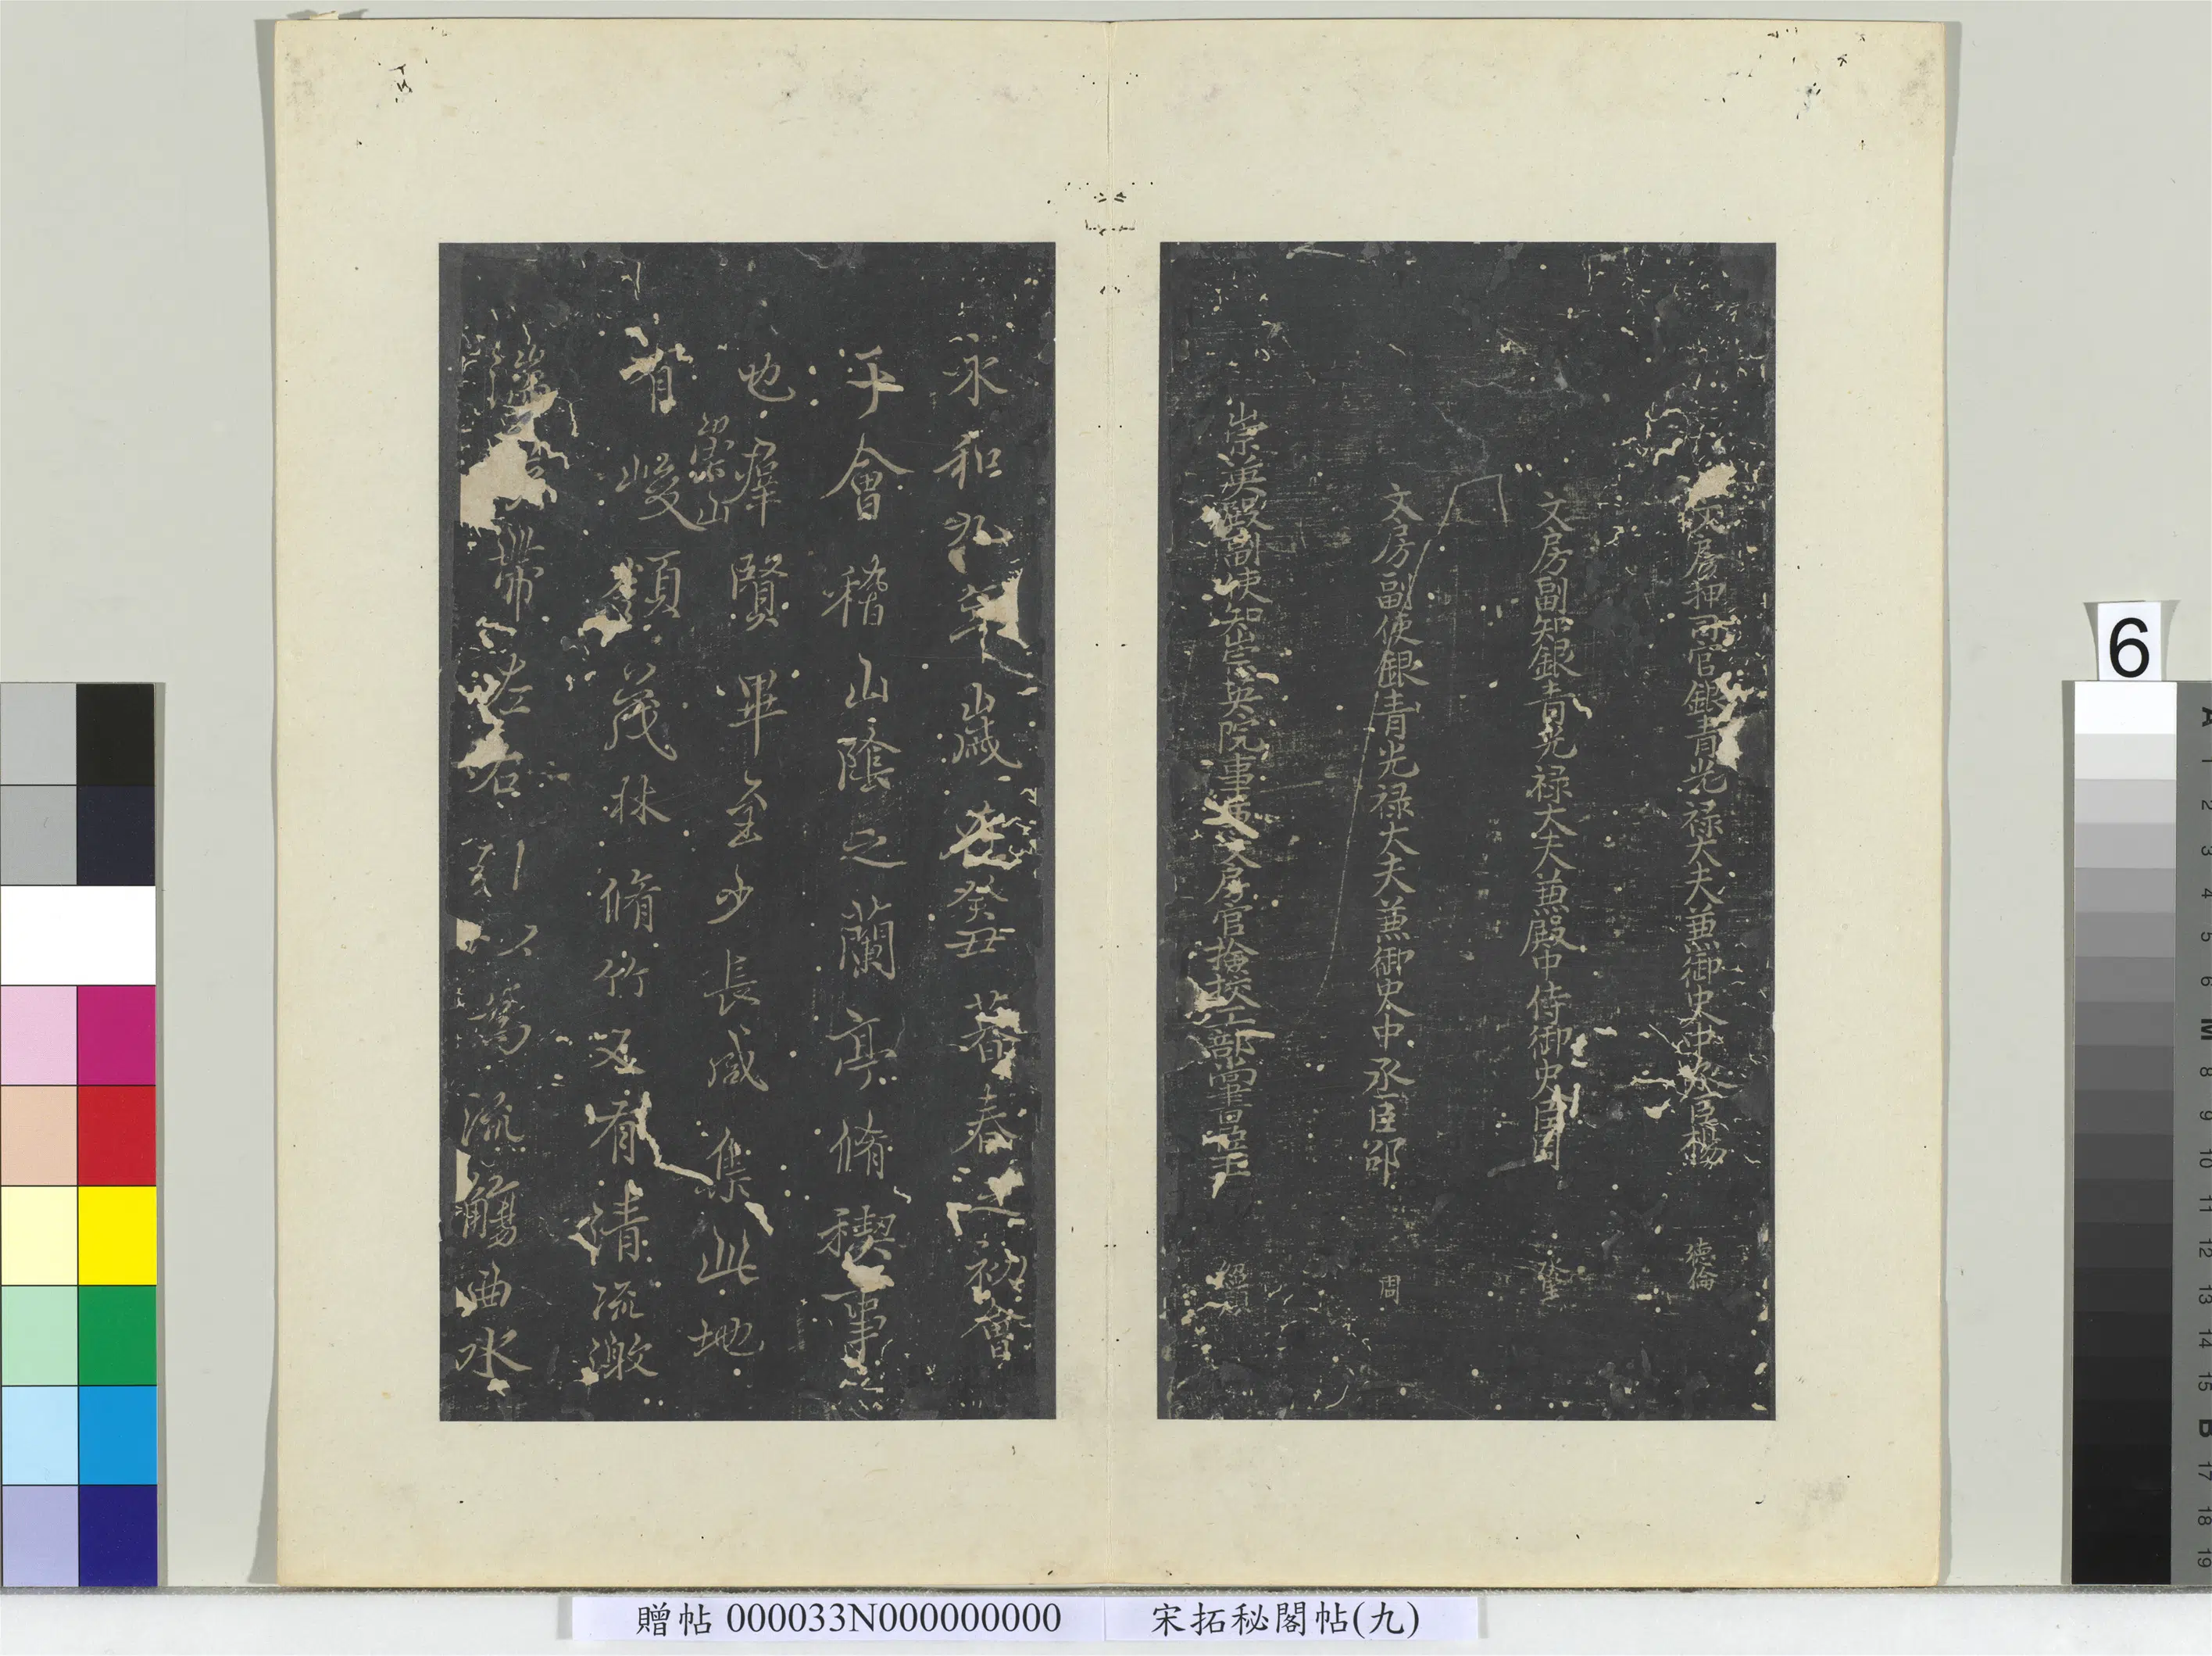 文房押司官銀青光祿大夫兼御史中丞臣楊 德倫
文房副知銀青光祿大夫兼殿中侍御史臣
文房副使銀青光祿大夫兼御史中丞臣邵 周
崇英殿副使知崇英院事兼文房官檢校工部尚書臣王
永和九年歲在癸丑暮春之初會
于會稽山陰之蘭亭脩稧事
也羣賢畢至少長咸集此地
崇山
有峻領茂林脩竹又有清流激
湍
帶左右引以為流觴曲水
贈帖 000033N000000000
宋拓秘閣帖(九)
6